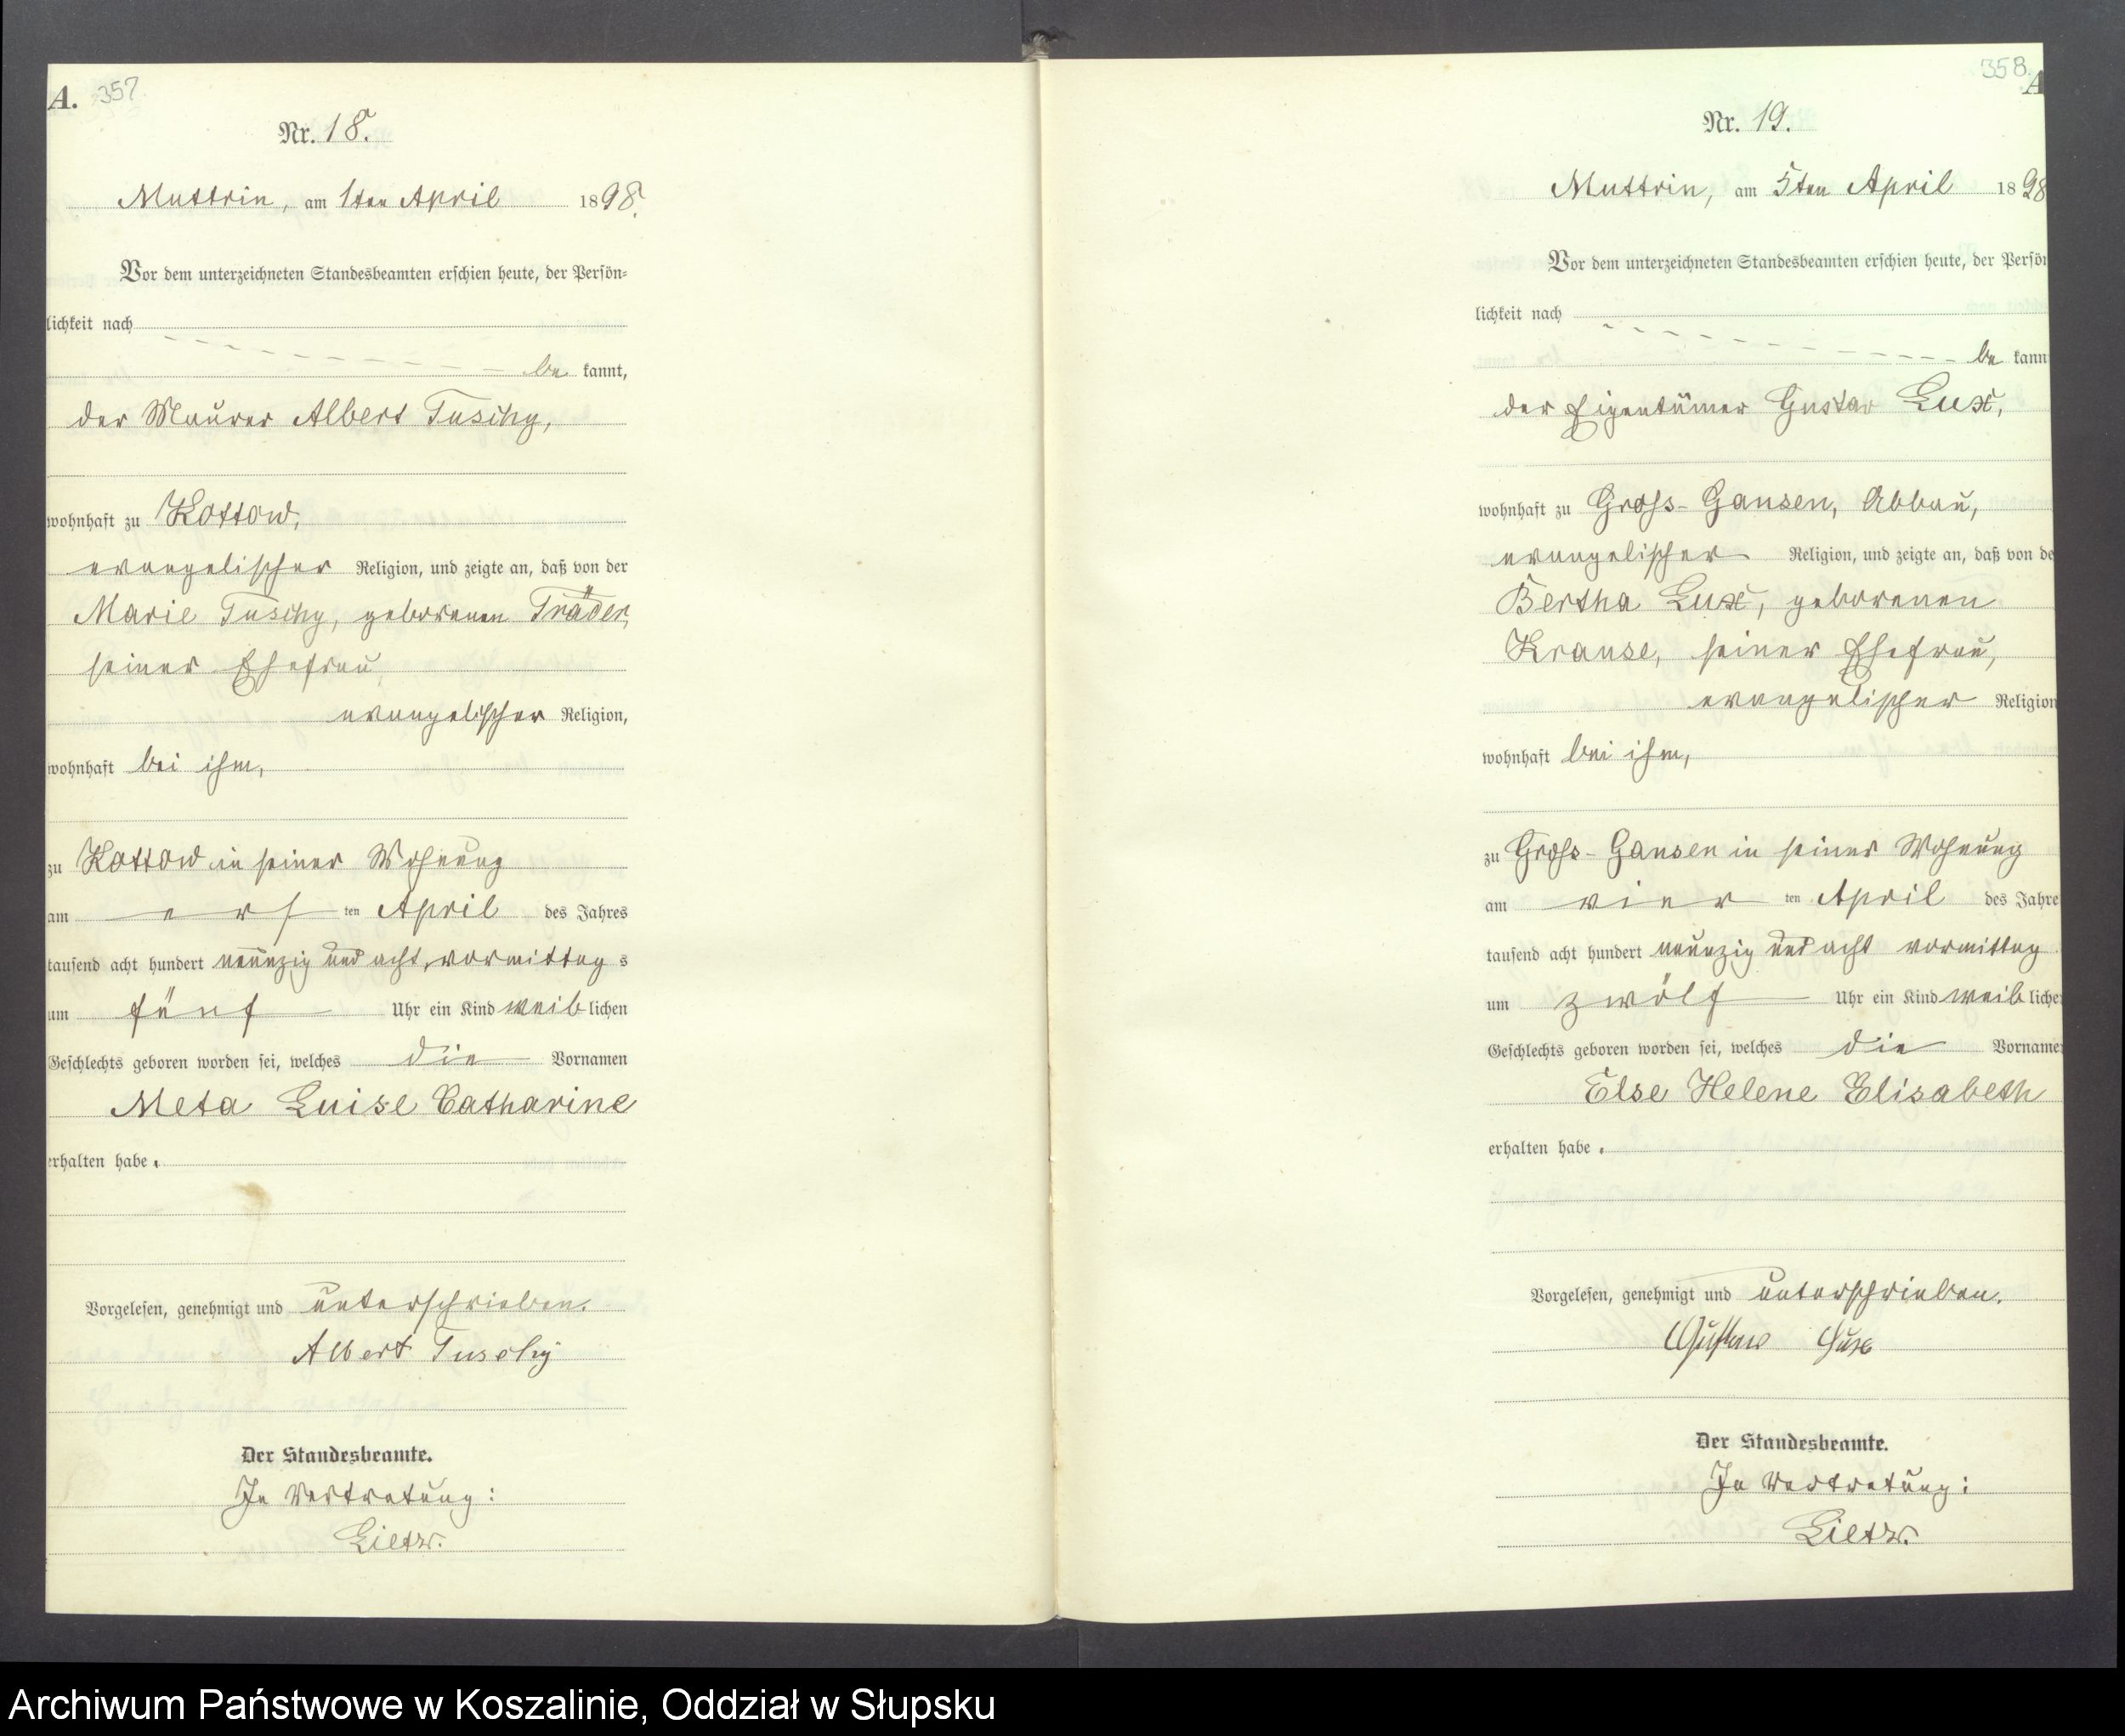 A. 357.
Nr. 18.
Muttrin, am 1ten April 1898.
Vor dem unterzeichneten Standesbeamten erschien heute, der Persön-
lichkeit nach
be kannt,
der Maurer Albert Tuschy,
wohnhaft zu Kottow,
evangelischer Religion, und zeigte an, daß von der
Marie Tuschy, geborenen Träder,
seiner Ehefrau,
evangelischer Religion,
wohnhaft bei ihm,
zu Kottow in seiner Wohnung
am ersten April des Jahres
tausend acht hundert neunzig und acht, vormittags
um fünf Uhr ein Kind weiblichen
Geschlechts geboren worden sei, welches die Vornamen
Meta Luise Catharine
erhalten habe.
Vorgelesen, genehmigt und unterschrieben.
Albert Tuschy
Der Standesbeamte.
In Vertretung:
Lietz.
358. A
Nr. 19.
Muttrin, am 5ten April 1898
Vor dem unterzeichneten Standesbeamten erschien heute, der Persön
lichkeit nach
be kann
der Eigentümer Gustav Lux,
wohnhaft zu Gross-Gansen, Abbau,
evangelischer Religion, und zeigte an, daß von de
Bertha Lux, geborenen
Krause, seiner Ehefrau,
evangelischer Religion
wohnhaft bei ihm,
zu Gross-Gansen in seiner Wohnung
am vierten April des Jahre
tausend acht hundert neunzig und acht vormittag
um zwölf Uhr ein Kind weibliche
Geschlechts geboren worden sei, welches die Vorname
Else Helene Elisabeth
erhalten habe.
Vorgelesen, genehmigt und unterschrieben.
Gustav Lux
Der Standesbeamte.
In Vertretung:
Lietz.
Archiwum Państwowe w Koszalinie, Oddział w Słupsku